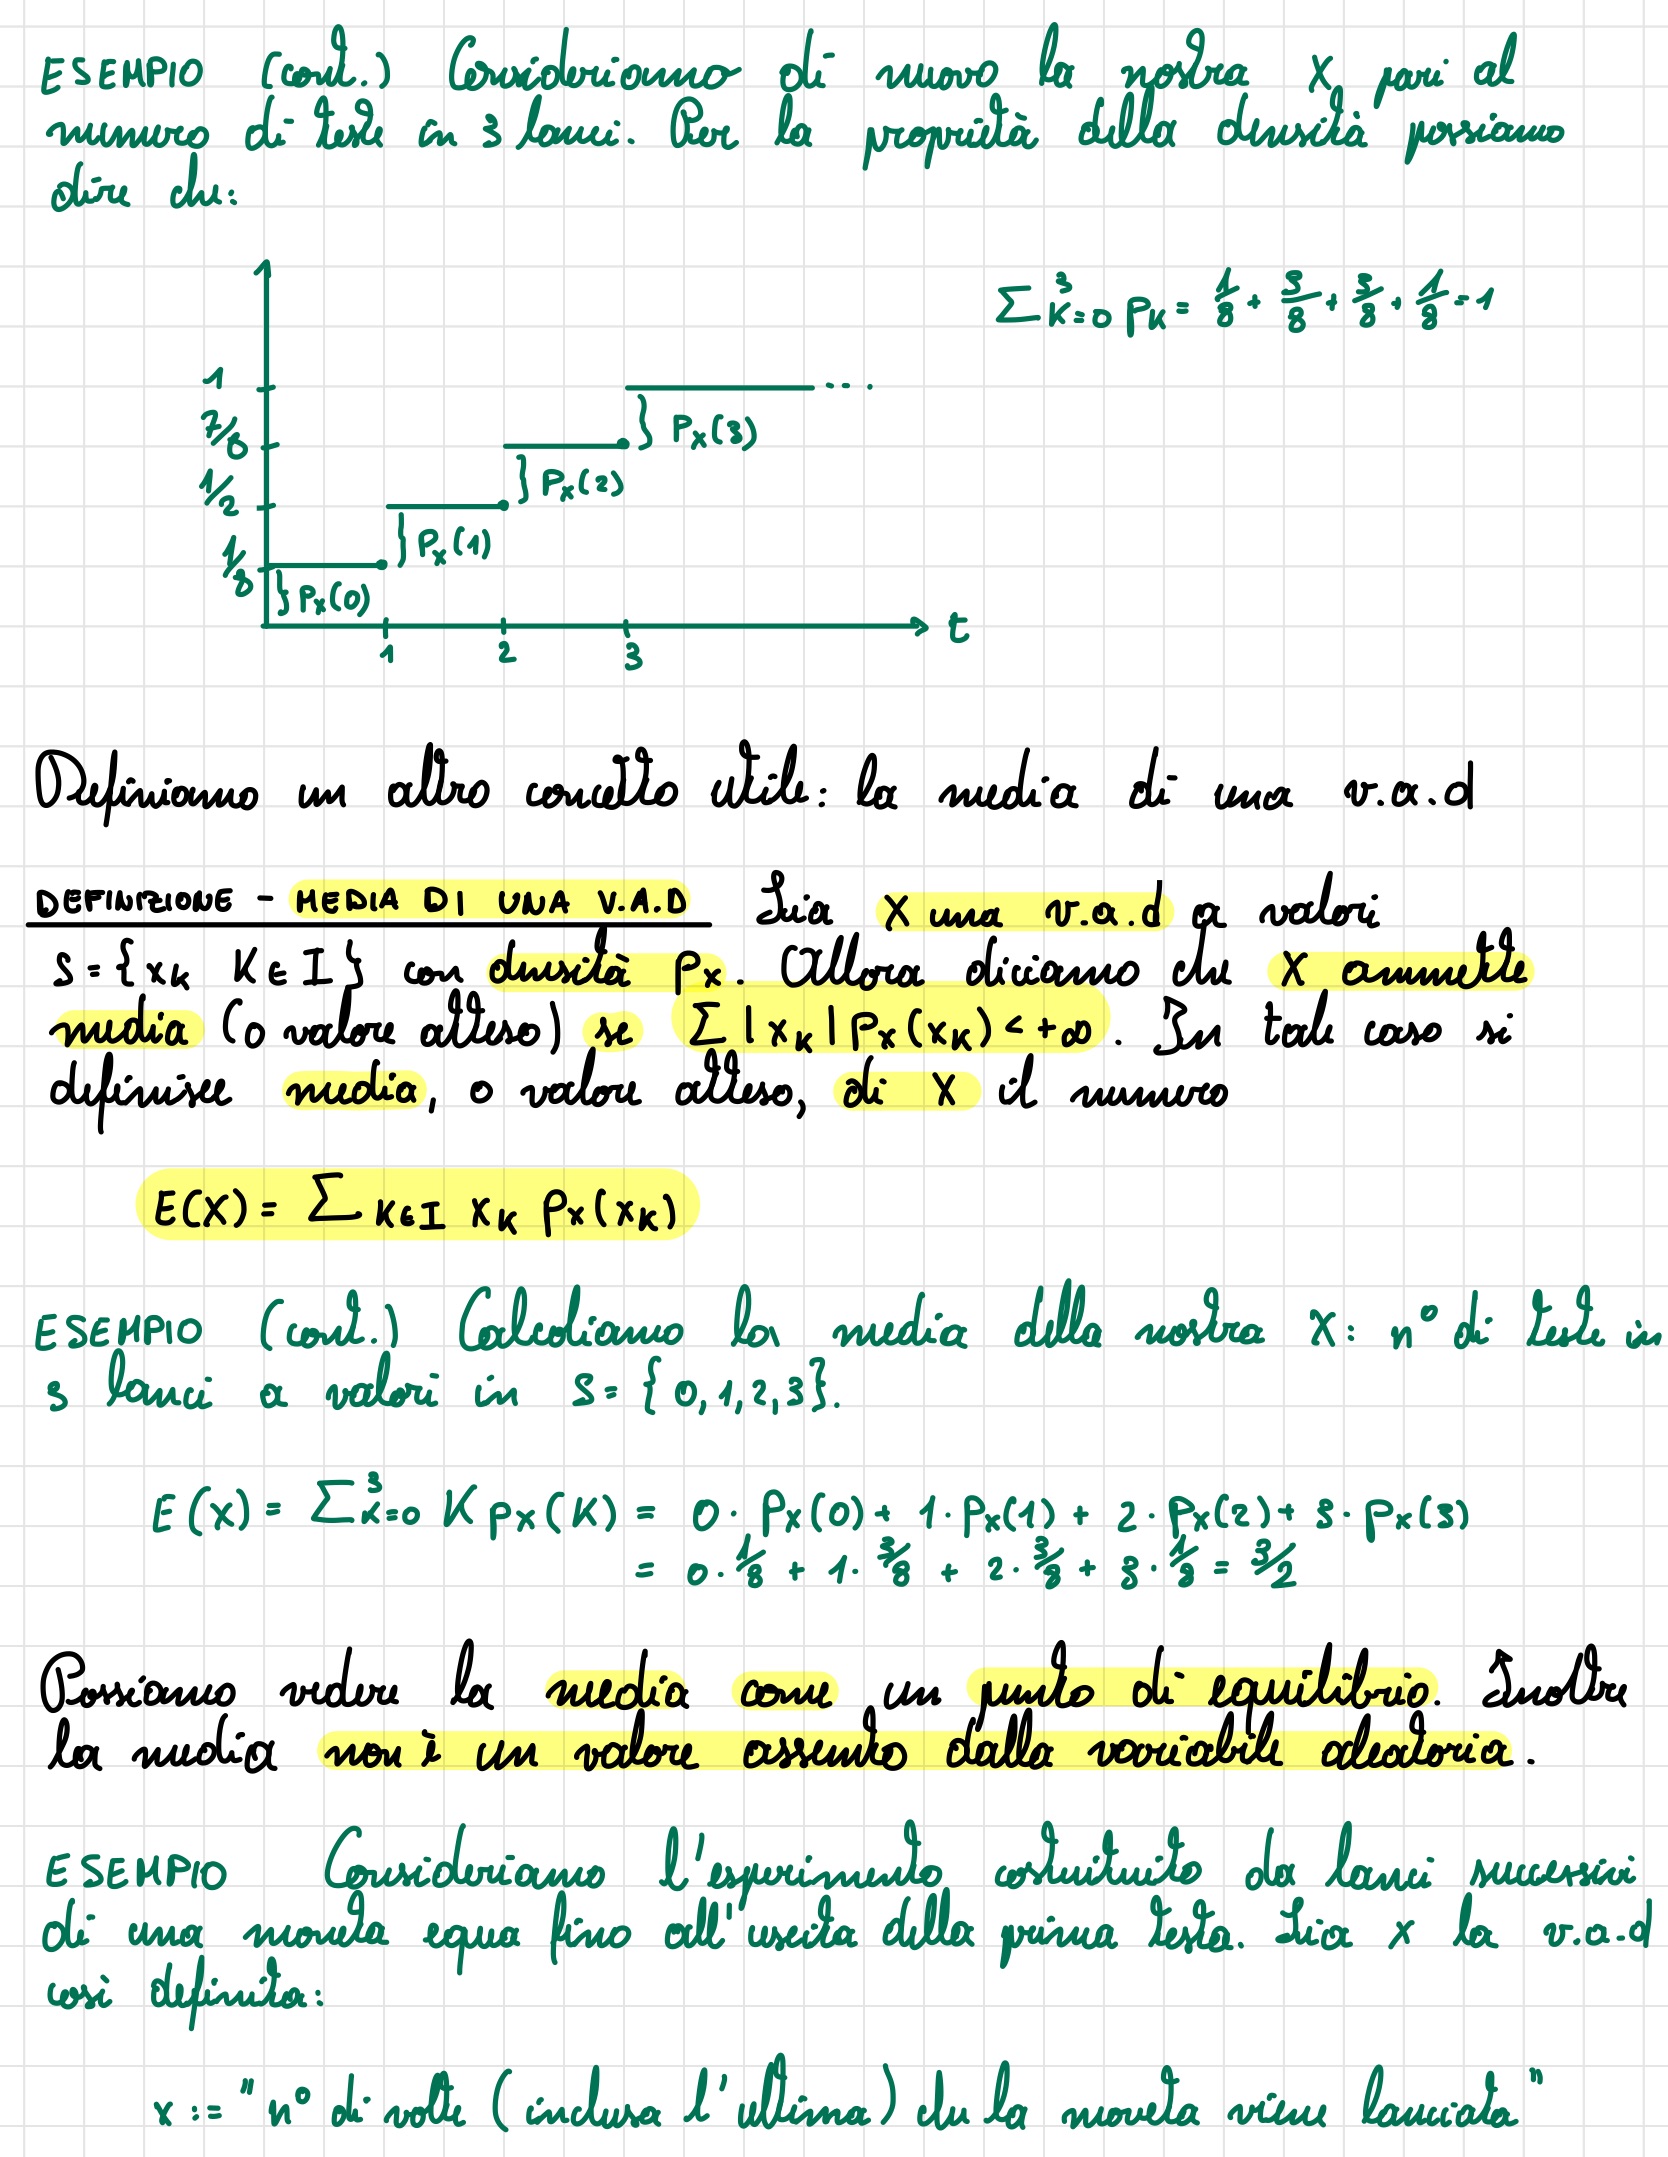 ESEMPIO (cont.) Consideriamo di nuovo la nostra X pari al
numero di teste in 3 lanci. Per la proprietà della densità possiamo
dire che:
∑ ³ₖ₌₀ pₖ = 1/8 + 3/8 + 3/8 + 1/8 = 1
1
} Pₓ(3)
7/8
} Pₓ(2)
1/2
} Pₓ(1)
1/8
} Pₓ(0)
1 2 3 t
Definiamo un altro concetto utile: la media di una v.a.d
DEFINIZIONE - MEDIA DI UNA V.A.D Sia X una v.a.d a valori
S = {xₖ K ∈ I} con densità pₓ. Allora diciamo che X ammette
media (o valore atteso) se ∑ |xₖ| pₓ(xₖ) < +∞. In tale caso si
definisce media, o valore atteso, di X il numero
E(X) = ∑ K∈I xₖ pₓ(xₖ)
ESEMPIO (cont.) Calcoliamo la media della nostra X: n° di teste in
3 lanci a valori in S = {0,1,2,3}.
E(X) = ∑ ³ₖ₌₀ K pₓ(K) = 0 · Pₓ(0) + 1 · Pₓ(1) + 2 · Pₓ(2) + 3 · pₓ(3)
= 0 · 1/8 + 1 · 3/8 + 2 · 3/8 + 3 · 1/8 = 3/2
Possiamo vedere la media come un punto di equilibrio. Inoltre
la media non è un valore assunto dalla variabile aleatoria.
ESEMPIO Consideriamo l'esperimento costuituito da lanci successivi
di una moneta equa fino all'uscita della prima testa. Sia x la v.a.d
così definita:
x := "n° di volte (inclusa l'ultima) che la moneta viene lanciata"